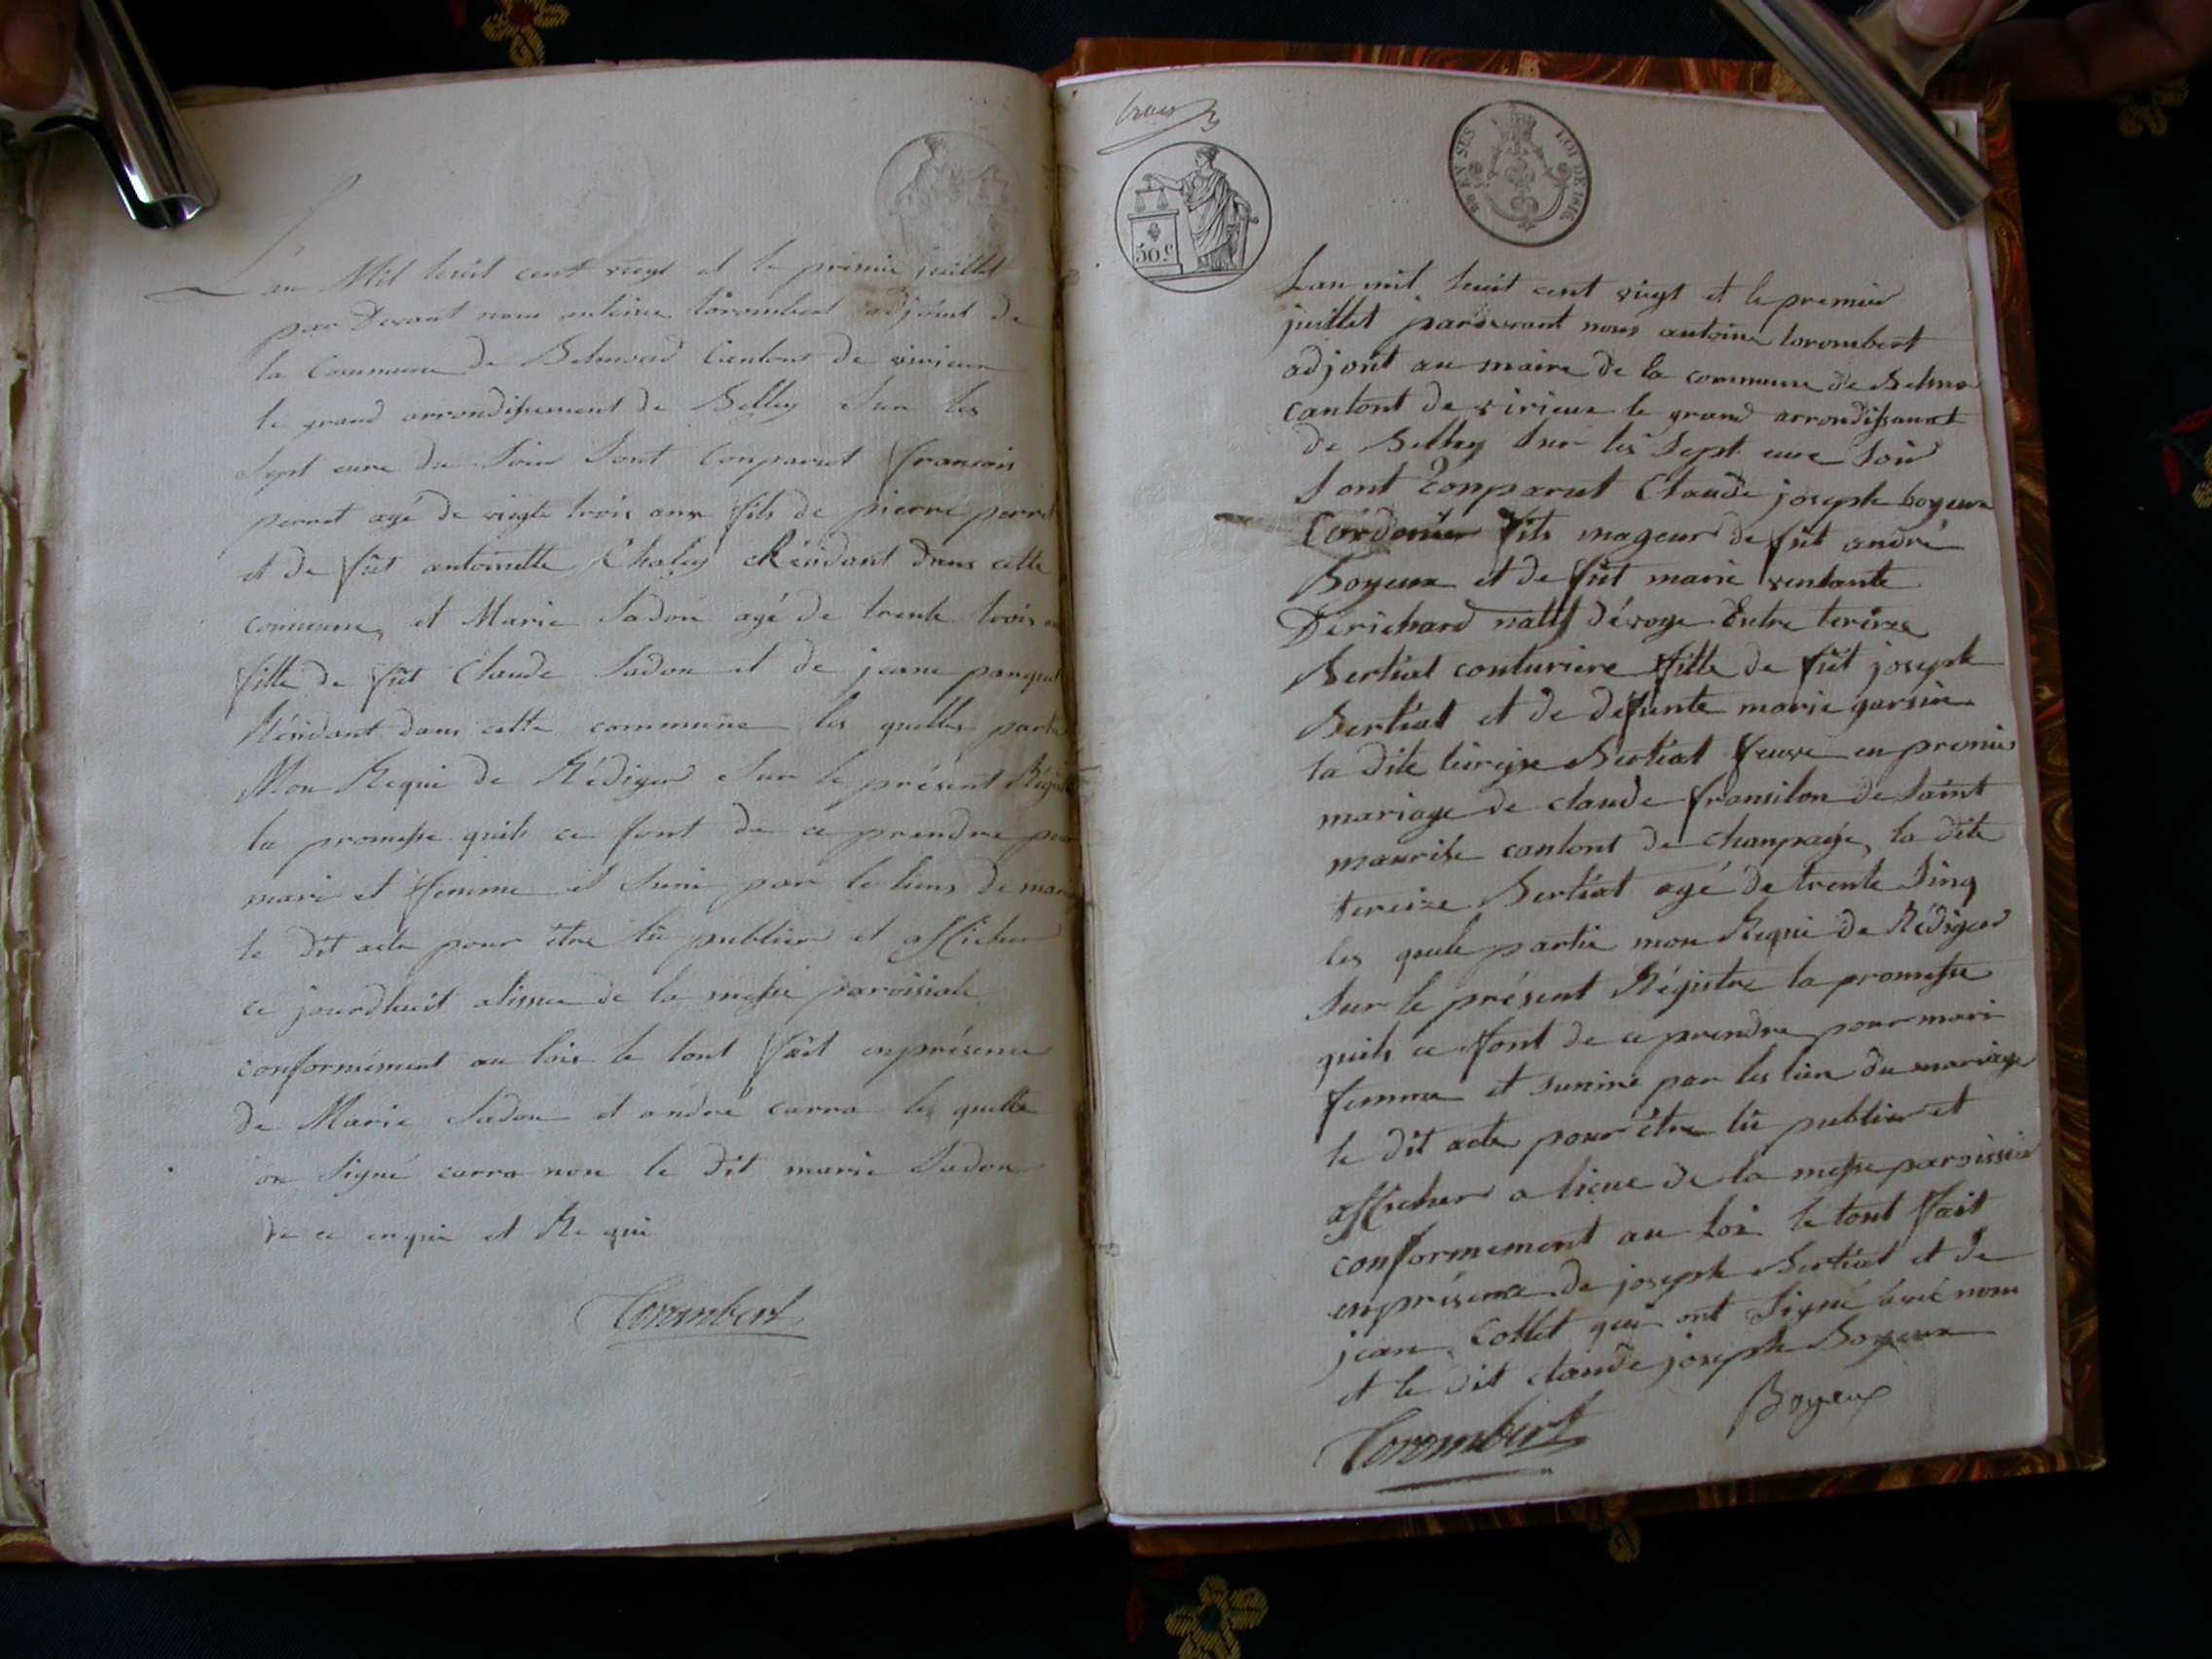 L'an Mil huit cent vingt et le premier juillet
par Devant nous antoine torombert adjoint de
la Commune de Belmond Cantont de virieux
le grand arrondissement de Belley Sur les
Sept eure du Soir Sont Conparut francois
perret agé de vingte trois ans fils de pierre perret
et de fût antoinette Chaley Résidant dans cette
commune, et Marie Sadon agé de trente trois
fille de fût Claude Sadon et de jeane
Résidant dans cette commune les quelles partie
Mon Requi de Rédiger Sur le présent Régistre
la promesse quils ce font de ce prendre pour
mari et femme et Suni par le liens de
le dit acte pour être lû publier et afficher
ce jourdhuit alissue de la messe paroisiale
conformément au lois le tout fait enprésence
de Marie Sadon et andré carra les quelle
on Signé carra non le dit marie Sadon
de ce enqui et Re qui
Torombert
trois
50.c
LOI DE 1816
Lan mil huit cent vingt et le premier
juillet pardevant nous antoine torombert
adjoit au maire de la commune de Belmo
cantont de virieux le grand arrondissemant
de Belley Sur les Sept eure Soir
Sont Conparut Claude joseph boyeux
Cordonier fils mageur de fût andré
Boyeux et de fût marie
Derichard natif Entre tereize
Bertiat couturiere fille de fût joseph
Bertiat et de defunte marie garsin
la dite tereize Bertiat feuve en premier
mariage de claude fransilon de Saint
maurise cantont de chanpagne, la dite
tereize Bertiat agé de trente Sinq
les quele partie mon Requi de Rédiger
Sur le présent Régistre la promesse
quils ce font de ce prendre pour mari
femme et sunire par les lien du mariage
le dit acte pour être lû publier et
afficher a lisue de la messe paroissial
conformement au loi le tout fait
enprésence de joseph Bertiat et de
jean Collet qui ont Signé avec nous
et le dit claude joseph Boyeux
Boyeux
Torombert